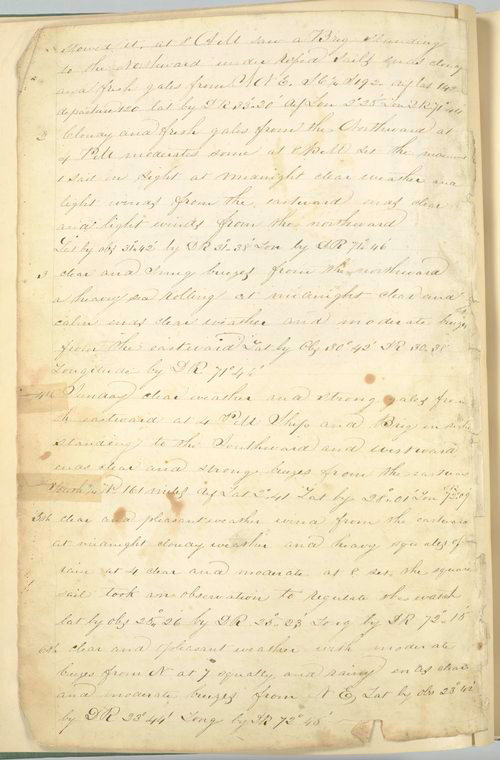 stowed it, at 8 AM saw a Brig standing
to the Northward under reefed sails ends cloudy
and fresh gales from NNE.
departure 120 lat by DR 33..20 Lon
2 Cloudy and fresh gales from the Northward at
4 PM moderates some at 8 PM set the
sail in sight at midnight clear weather and
light winds from the eastward ends clear
and light winds from the northward
Lat by obs 31°42' by DR 31..38 Lon by DR 71°46
3 clear and Snug breezes from the northward
a heavy sea Rolling at midnight clear and
calm ends clear weather and moderate breezes
from the eastward Lat by Obs 30°42' DR 30..38
Longitude by DR 71°
4th Sunday clear weather and strong gales from
the eastward at 4 PM Ship and Brig in sight
standing to the Southward and westward
ends clear and strong breezes from the eastward
161 miles Lat 2°41 Lat by 28..01 Lon 72..09
5th clear and pleasant weather wind from the eastward
at midnight cloudy weather and heavy squalls of
rain at 4 clear and moderate at 8 set the square
sail took an observation to regulate the watch
lat by obs 25° 26 by DR 25..23 Long by DR 72°15'
6th clear and pleasant weather with moderate
breezes from N at 7 squally and rainy ends clear
and moderate breezes from N E, Lat by obs 23°42'
by DR 23°44' Long by DR 72°48'